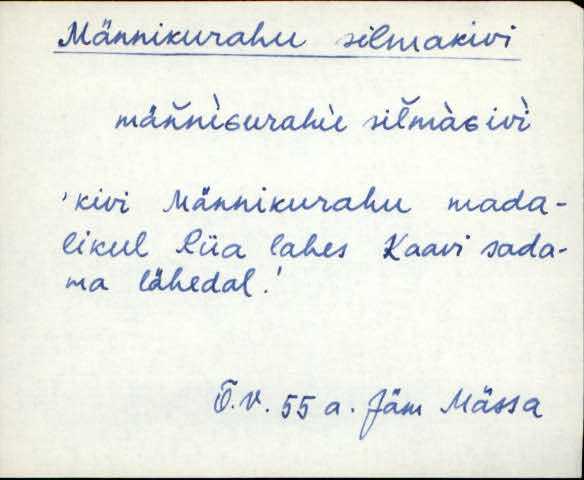 Männikurahu silmakivi
män̆nìɢurahìe sil̆màɢivì
'kivi Männikurahu mada-
likul Riia lahes Kaavi sada-
ma lähedal.'
T.V. 55 a. Jäm Mässa